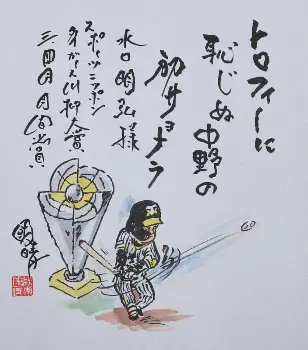 トロフィーに
恥じぬ中野の
初サヨナラ
水口明弘様
スポーツニッポン
タイガース川柳大賞
三・四月月間賞